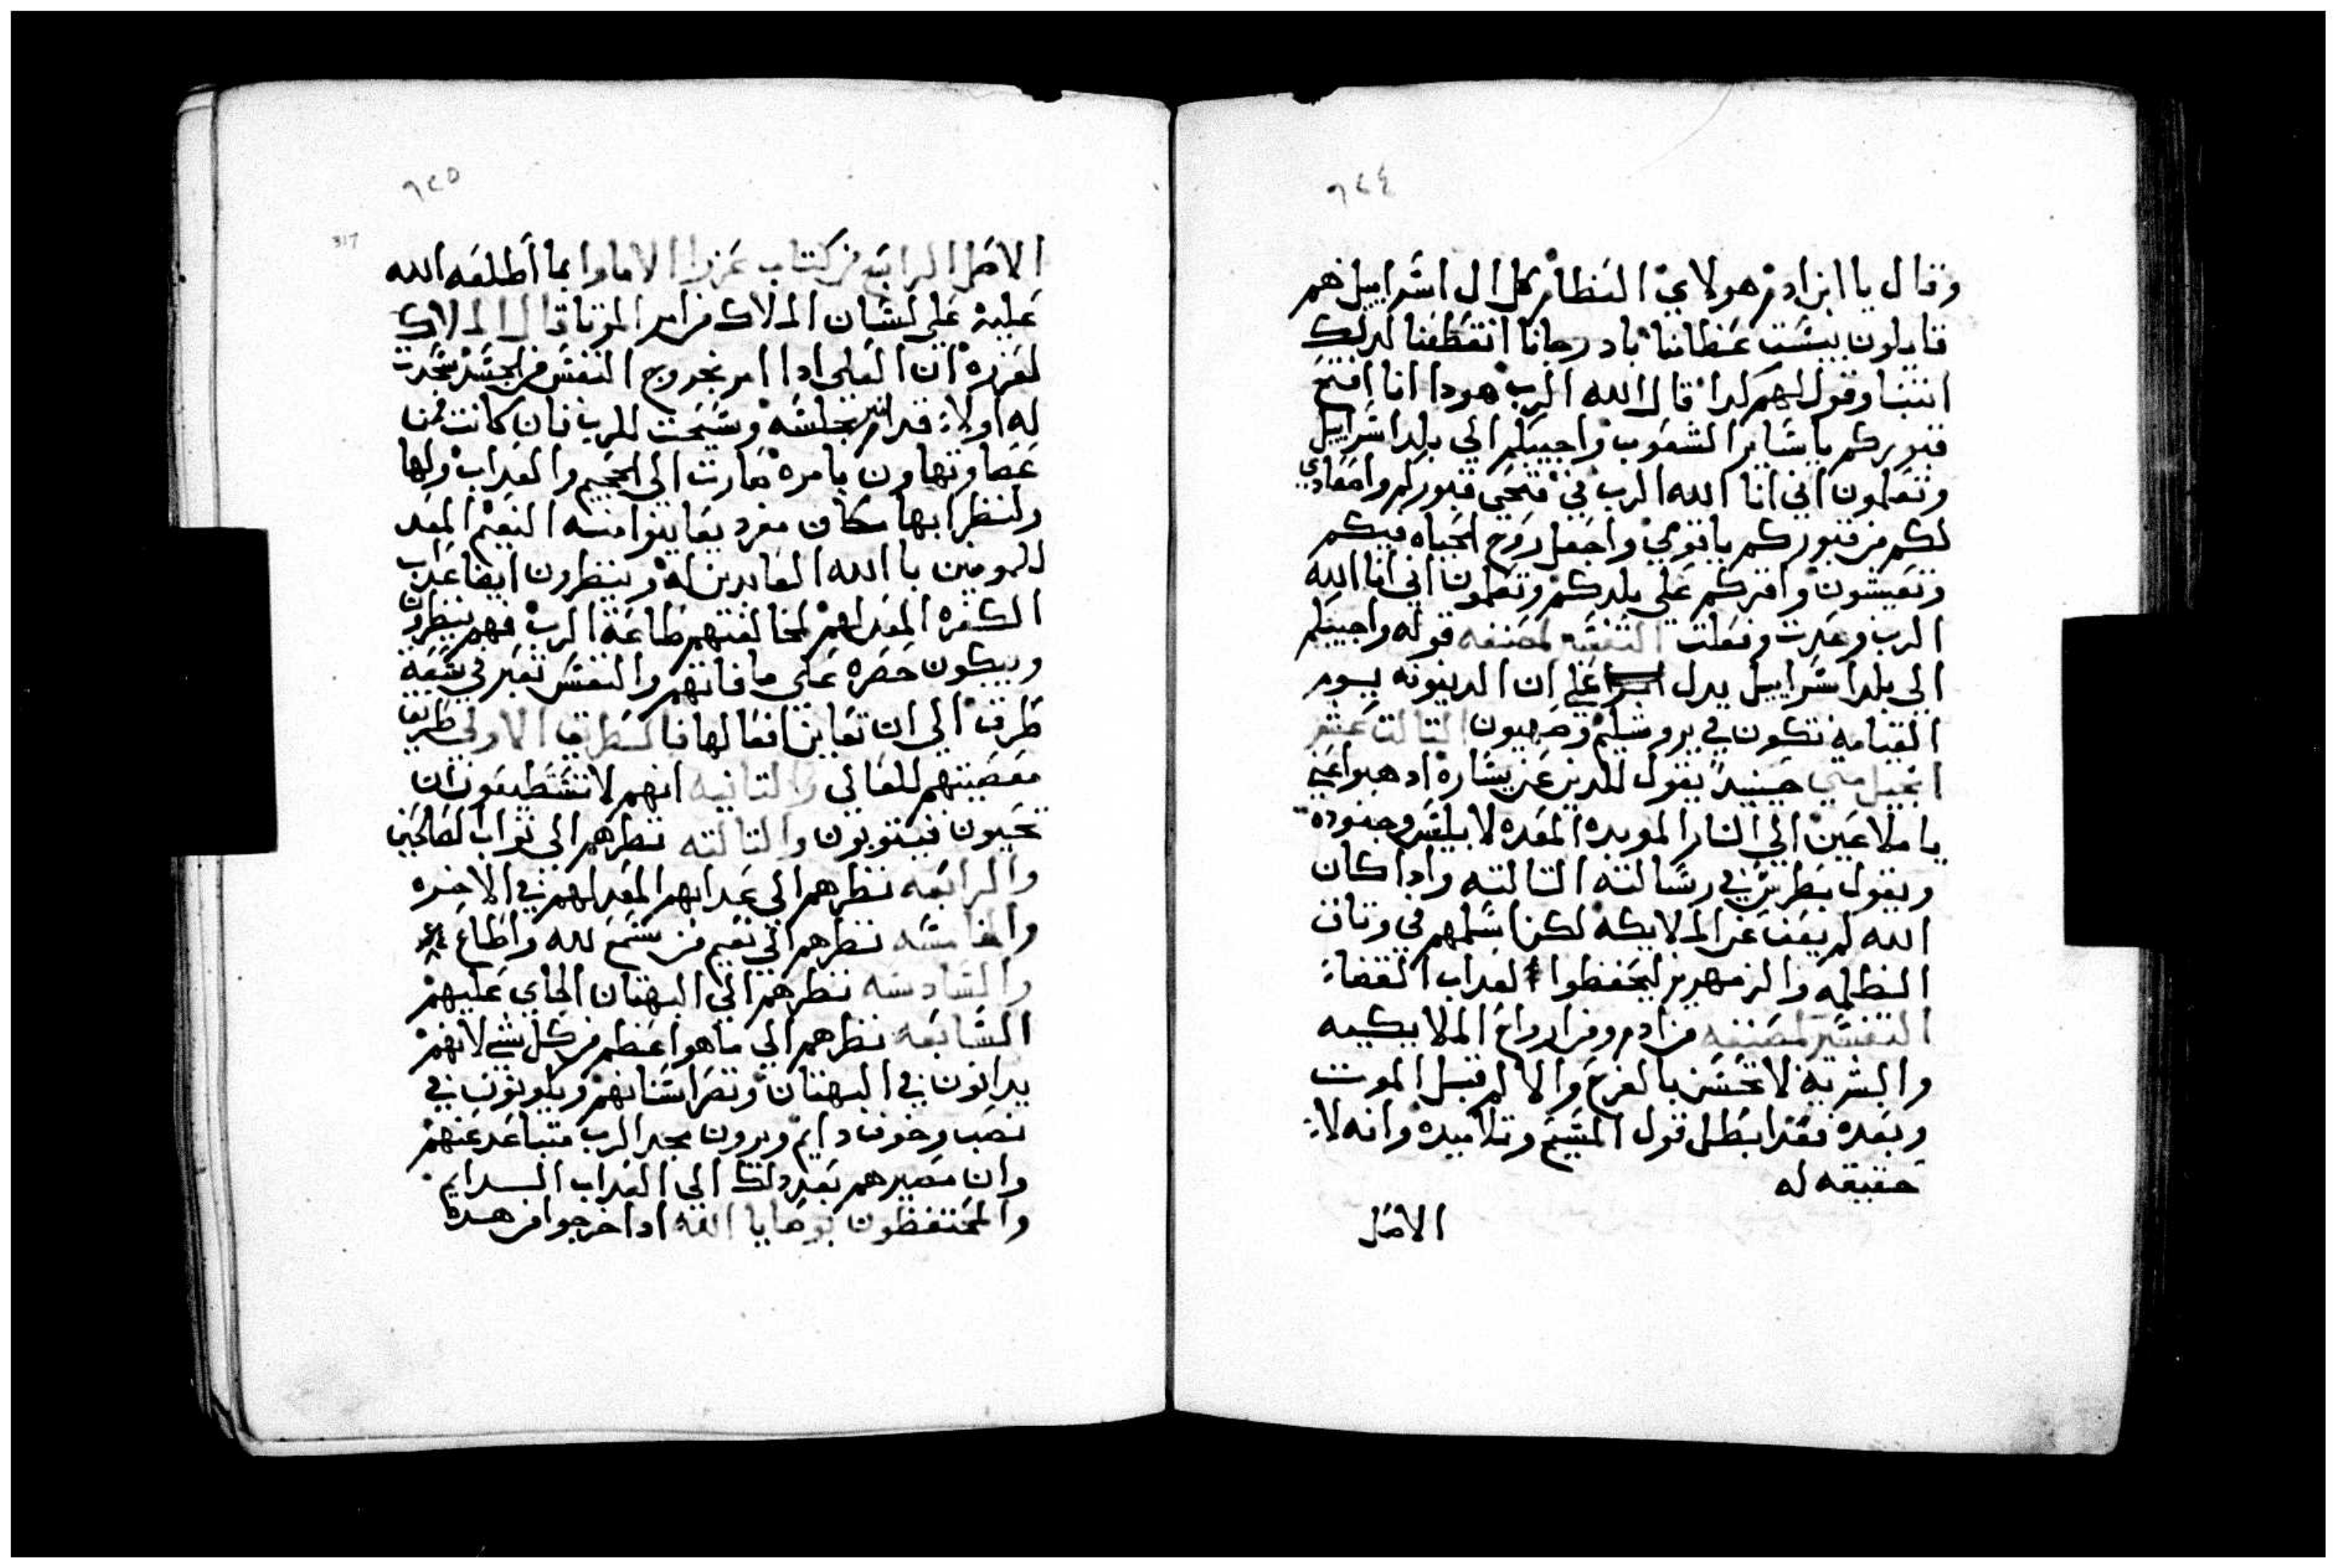 ٩٢٤
وقال يا ابن ادم هولاي العظام كل ال اسراييل هم
قايلون يبست عظامنا باد رجانا انقطفنا لدلك
اتنبا وقول لهم كدا قال الله الرب هودا انا افتح
قبوركم يا ساير الشعوب واجيبكم الي بلد اسراييل
وتعلمون اني انا الله الرب في فتحي قبوركم واصعادي
لكم من قبوركم يا قومي واجعل روح الحياه فيكم
وتعيشون واقركم علي بلدكم وتعلمون اني انا الله
الرب وعدت وفعلت التفسير لمصنفه قوله واجيبكم
الي بلد اسراييل يدل علي ان الدينونه يوم
القيامه تكون في يروشليم وصهيون التالت عشر
انجيل متي حينيد يقول للدين عن يساره ادهبوا عني
يا ملاعين الي النار الموبده المعده لابليس وجنوده
ويقول بطرس في رسالته التالته وادا كان
الله لم يعف عن الملايكه لكن اسلمهم في وتاق
الظلمه والزمهرير ليحفظوا لعداب القضا
التفسير لمصنفه من ادم ومن ارواح الملايكيه
والبشريه لا تحس بالفرح والالم قبل الموت
وبعده فقد ابطل قول المسيح وتلاميده وانه لا
حقيقه له
الاصل
٩٢٥
317
الاصل الرابع من كتاب عزرا الاماوا بما أطلعه الله
عليه علي لسان الملاك من امر الموتا قال الملاك
لعزره ان العلي ادا امر بخروج النفس من الجسد سجدت
له اولا قدام مجلسه وسبحت للرب فان كانت ممن
عصا وتهاون بامره صارت الي الجحيم والعداب ولها
ولنظرايها مكان مفرد يعاينوا منه النعيم المعد
للمومنين بالله العابدين له وينظرون ايضا عداب
الكفره المعد لهم لمخالفتهم طاعة الرب فهم ينظرون
ويبكون حصره علي ما فاتهم والنفس تعبر في سبعة
طرق الي ان تعاين افعالها فالطريق الاولي طريق
معصيتهم للعالي والتانيه انهم لا تستطيعون ان
تحيون فيتوبون والتالته نظرهم الي تواب الصالحين
والرابعه نظرهم الي عدابهم المعد لهم في الاخره
والخامسه نظرهم الي نعيم من سمع لله وأطاع
والسادسه نظرهم الي البهتان الجاي عليهم
السابعه نظرهم الي ما هو اعظم من كل شي لانهم
يدانون في البهتان وتضراسنانهم ويكونون في
نصب وخوف دايم ويرون مجد الرب متباعد عنهم
وان مصيرهم بعد دلك الي العداب الدايم
والمحتفظون بوصايا الله ادا خرجوا من هده